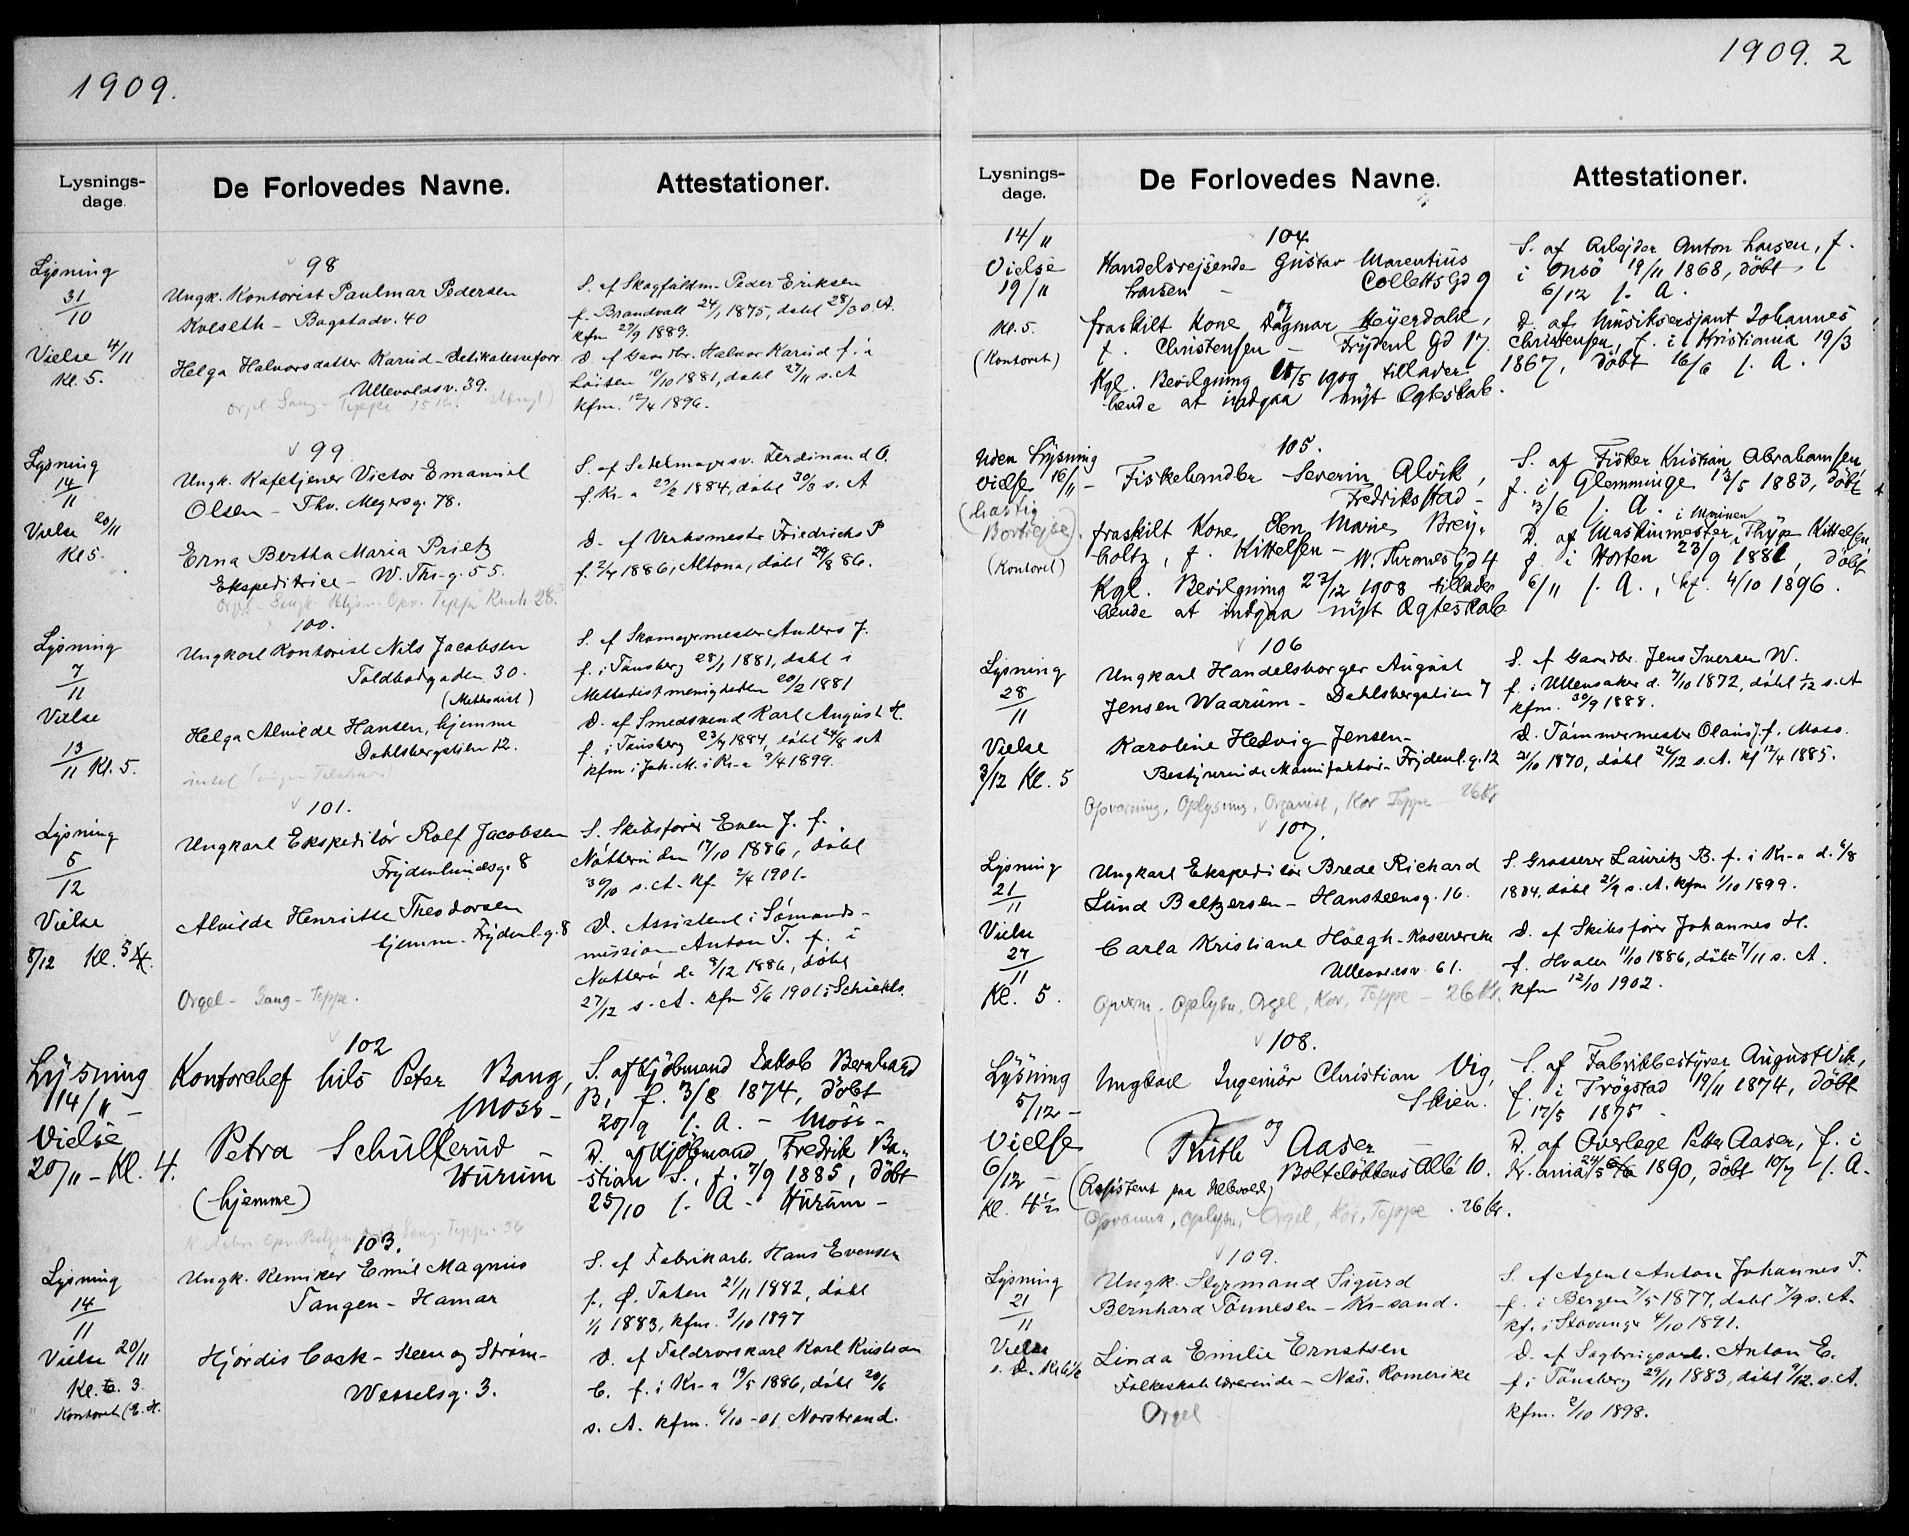 1909.
Lysnings-
dage.
De Forlovedes Navne.
Attestationer.
Lysning
31/10
Vielse 4/11
Kl. 5.
98
Ungk. Kontorist Paulmar Pedersen
Kveseth - Bogstadv. 40
Helga Halvorsdatter Karud - Delikatesseforr.
Ullevoldsv. 39.
S. af Skogfuldm. Peder Eriksen
f. Brandvall 24/1 1875, døbt 28/3 s. A.
kfm 29/9 1889.
D. af Gaardbr. Halvor Karud f. i
Löiten 10/10 1881, døbt 27/11 s. A
kfm. 12/4 1896.
Lysning
14/11
Vielse 20/11
Kl 5.
99
Ungk. Kafetjener Victor Emanuel
Olsen - Thv. Meyersg. 78.
Erna Bertha Maria Prietz
Ekspeditrice - W. Thr-g. 55.
S. af Sadelmagersv. Ferdinand O.
f. Kr-a 23/2 1884, døbt 30/3 s. A
D. af Verksmester Friedrichs P
f. 2/4 1886, Altona, døbt 29/8 86.
Lysning
7/11
Vielse
13/11 Kl. 5.
100.
Ungkarl Kontorist Nils Jacobsen
Toldbodgaden 30.
(Methodist)
Helga Alvilde Hansen, hjemme
Dahlsbergstien 12.
S. af Skomagermester Anders J.
f. i Tønsberg 28/1 1881, døbt i
Methodistmenigheden 20/2 1881
D. af Smedsvend Karl August H.
f. i Tønsberg 23/7 1884, døbt 24/8 s A
kfm. i Joh. M. i Kr-a 9/4 1899.
Lysning
5/12
Vielse
8/12 Kl. 5
101.
Ungkarl Ekspeditör Rolf Jacobsen
Frydenlundsg. 8
Alvilde Henriette Theodorsen
hjemme. Frydenl.g. 8
Orgel - Sang - Teppe.
S. Skibsfører Even J. f.
Nötterö den 17/10 1886, döbt
s. A. kf. 2/4 1901.
D. Assistent i Sömands-
mission Anton T. f. i
Nötterö de 8/12 1886, döbt
27/12 s. A. kfm 5/6 1901
Lysning
14/11 -
Vielse
20/11 - Kl. 4.
102
Kontorchef Nils Peter Bang,
Moss -
Petra Schullerud
Hurum
(hjemme)
S. af Kjöbmand Jakob Bernhard
B., f. 3/8 1874, döbt
20/9 s. A. - Moss -
D. af Kjöbmand Fredrik Ba-
stian S., f. 7/9 1885, döbt
25/10 s. A - Hurum -
Lysning
14/11
Vielse 20/11
Kl. 3.
103.
Ungk. Kemiker Emil Magnus
Tangen - Hamar
Hjördis Cock - Steen og Ström-
Wesselsg. 3.
S. af Fabrikarb. Hans Evensen
f. Ø. Toten 21/11 1882, døbt
1/1 1883, kfm. 3/10 1897
D. af Toldrorskarl Karl Kristian
C. f. i Kr-a 19/5 1886, døbt 20/6
s. A. kfm. 6/10 -01 Norstrand.
1909. 2
Lysnings-
dage.
De Forlovedes Navne.
Attestationer.
14/11
Vielse
19/11
Kl. 5.
(Kontoret)
104
Handelsrejsende Gustav Marentius
Larsen - Colletts Gd 9
og
fraskilt Kone Dagmar Meyerdahl,
f. Christensen - Frydenl Gd 17.
Kgl. Bevilgning 5 1909 tillader
bende at indgaa nyt Ægteskab.
S. af Arbejder Anton Larsen, f.
i Onsö 19/11 1868, döbt
6/12 s. A.
D. af Musiksersjant Johannes
Christensen, f. i Kristiania 19/3
1867, döbt 16/6 s. A.
Uden Lysning
Vielse 16/11 -
(hastig
Bortrejse).
(Kontoret)
105.
Fiskehandler Severin Alvik,
Fredriksstad -
fraskilt Kone Elen Marie Brey-
holtz, f. Kittelsen - W. Thranes Gd 4
Kgl. Bevilgning 23/12 1908 tillader
bende at indgaa nyt Ægteskab
S. af Fisker Kristian Abrahamsen
f. i Glemminge 13/5 1883, döbt
13/6 s. A.
i Marinen
D. af Maskinmester Thyge Kittelsen
f. i Horten 23/9 1881, döbt
6/11 s. A., kf. 4/10 1896.
Lysning
28/11
Vielse
3/12 Kl. 5
106
Ungkarl Handelsborger August
Jensen Waarum - Dahlsbergstien 7
Karoline Hedvig Jensen -
Bestyrerinde Manufaktur - Frydenl.g. 12
Opvarming, Oplysning, Organist, Kor Teppe - 26 Kr
S. af Gaardbr. Jens Iversen W.
f. i Ullensaker d. 7/10 1872, døbt 1/12 s. A
kfm. 30/9 1888.
D. Tömmermester Olaus J. f. Moss.
21/10 1870, døbt 26/12 s. A. kf 12/4 1885.
Lysning
21/11
Vielse
27/11
Kl. 5.
107.
Ungkarl Ekspeditör Brede Richard
Lund Baltzersen - Hansteensg. 16.
Carla Kristiane Höegh - Kassererske
Ullevoldsv 61.
Opvarm. Oplysn, Orgel, Kor, Teppe - 26 Kr.
S. Grosserer Lauritz B. f. i Kr-a d. 6/8
1884, døbt 21/9 s. A. kfm 1/10 1899.
D. af Skibsförer Johannes H.
f. Hvaler 11/10 1886, döbt 7/11 s. A.
kfm 12/10 1902.
Lysning
5/12 -
Vielse
6/12 -
Kl. 4 1/2
108.
Ungkarl Ingeniör Christian Vig,
Skien.
og
Ruth Aaser -
Bolteløkkens Allé 10.
(Assistent paa Ullevold)
Opvarm, Oplysn, Orgel, Kor, Teppe. 26 Kr.
S. af Fabrikbestyrer August Vik,
f. i Trögstad 19/11 1874, döbt
17/5 1875 -
D. af Overlæge Petter Aaser, f. i
Kr.ania 24/5 1890, döbt 10/7 s. A.
Lysning
21/11
Vielse
109.
Ungk. Styrmand Sigurd
Bernhard Tönnesen - Kr-sand.
Linda Emilie Ernstsen
Folkeskolelærerinde - Nös. Romerike
Orgel
S. af Agent Anton Johannes T.
f. i Bergen 7/5 1877, døbt 7/9 s. A.
kf. i Stavanger 4/10 1891.
D. af Sagbrugsarb. Anton E.
f. i Tönsberg 29/11 1883, døbt 9/12 s. A.
kfm. 2/10 1898.